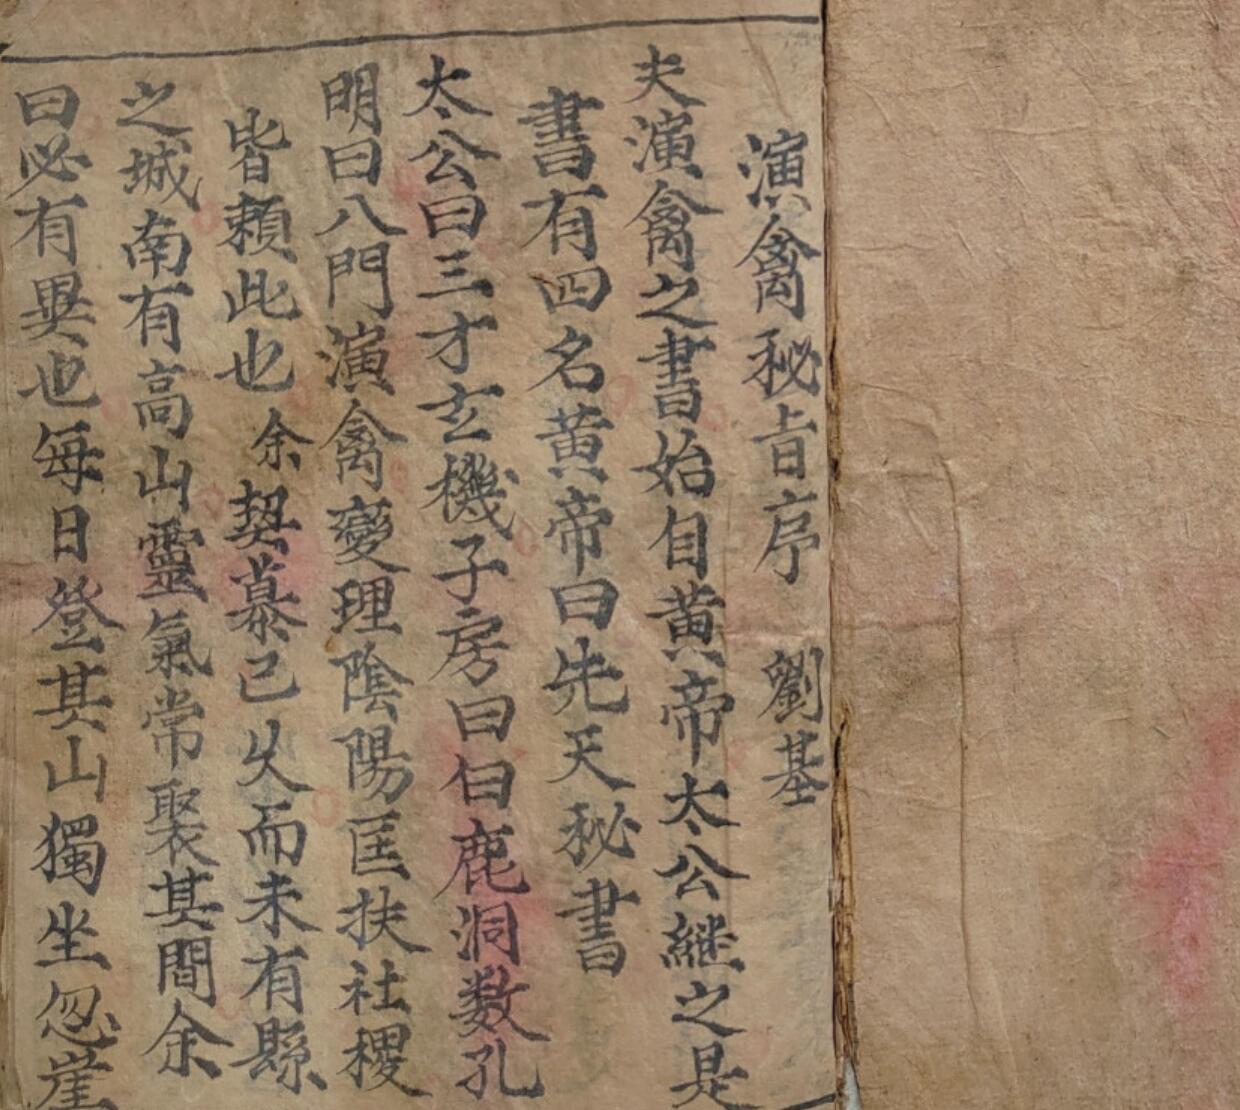 演禽秘旨序 劉基
夫演禽之書始自黄帝太公継之是
書有四名黄帝曰先天秘書
太公曰三才玄機子房曰白鹿洞数孔
明曰八門演禽變理陰陽匡扶社稷
皆頼此也余契慕已久而未有縣
之城南有高山靈氣常聚其間余
曰必有異也每日登其山獨坐忽崖